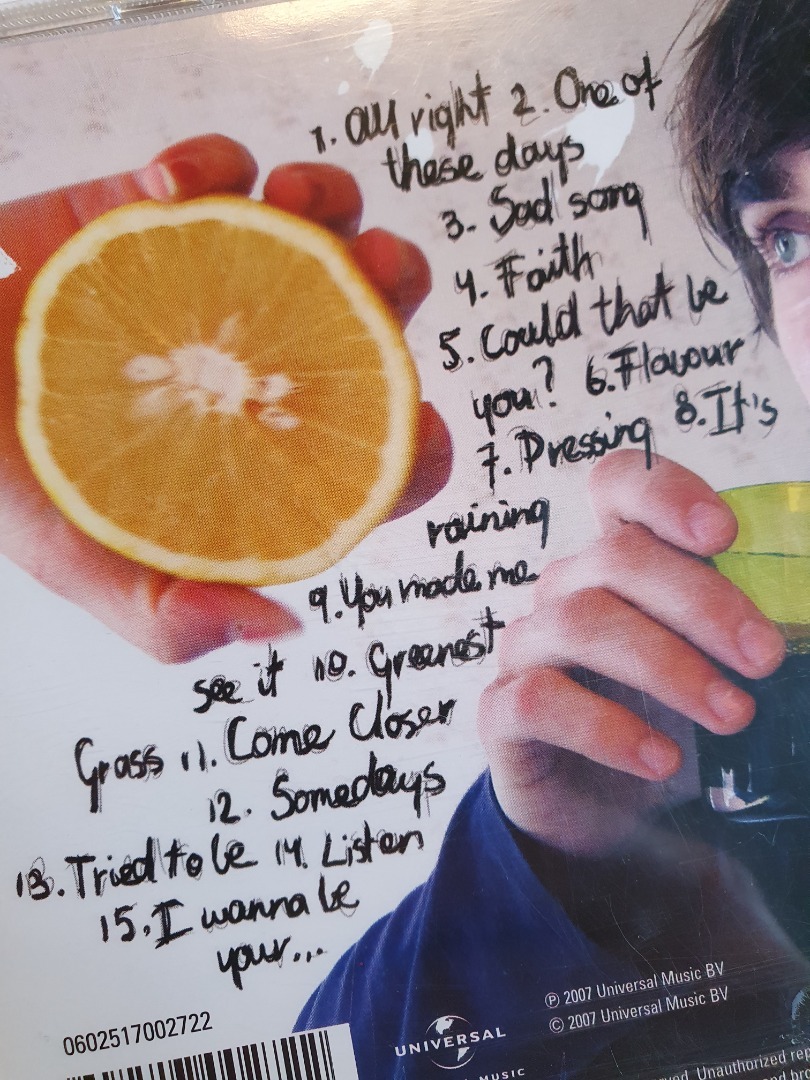 1. All right 2. One of
these days
3. Sad song
4. Faith
5. Could that be
you? 6. Flavour
7. Dressing 8. It's
raining
9. You made me
see it 10. Greenest
Grass 11. Come Closer
12. Somedays
13. Tried to be 14. Listen
15. I wanna be
your...
℗ 2007 Universal Music BV
© 2007 Universal Music BV
0602517002722
UNIVERSAL
MUSIC
Unauthorized